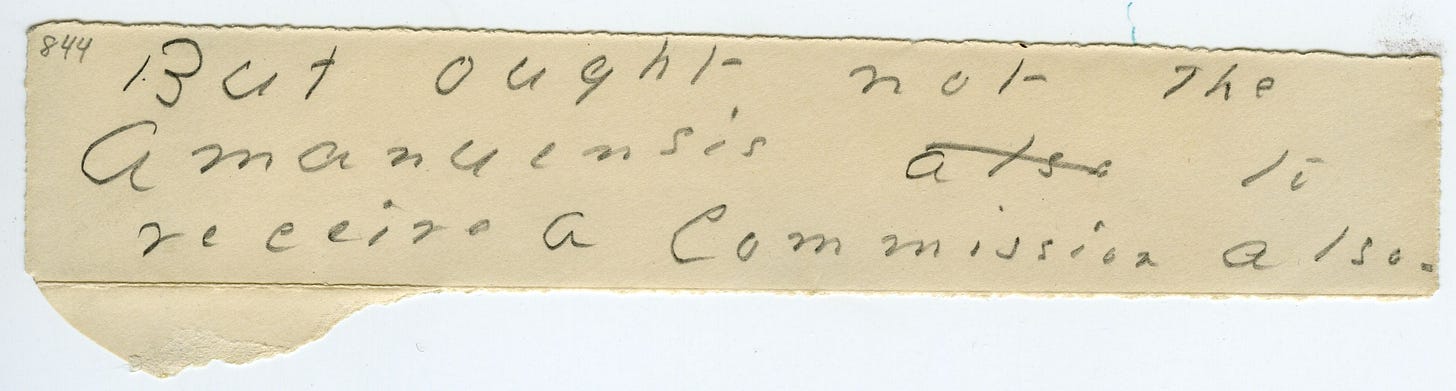 844
But ought not the
Amanuensis also to
receive a Commission also.